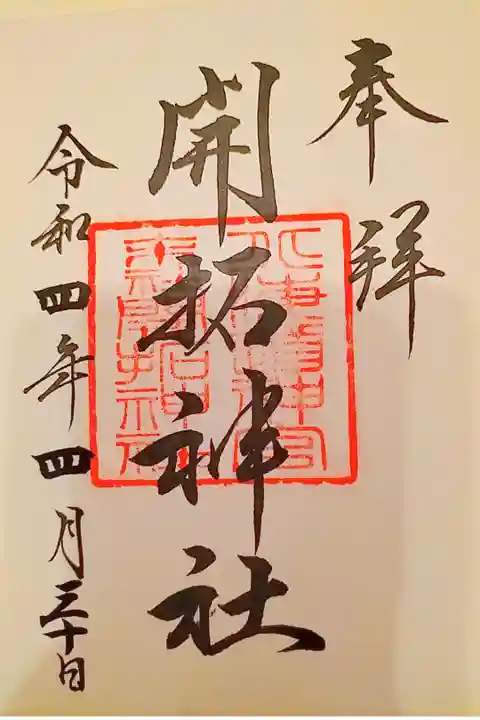 奉拝
開拓神社
北海道神宮
末社開拓神社
令和四年四月三十日